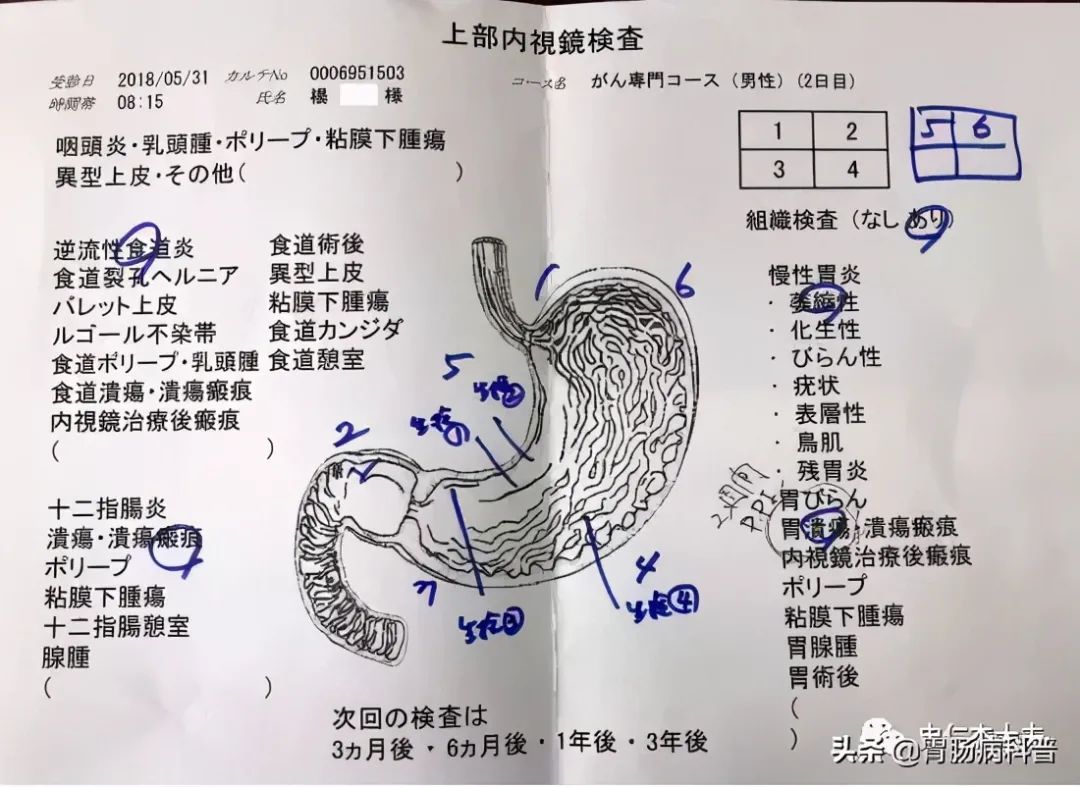 上部内視鏡検査
受診日 2018/05/31 カルテNo 0006951503 コース名 がん専門コース (男性) (2日目)
時間帯 08:15 氏名 楊 様
咽頭炎・乳頭腫・ポリープ・粘膜下腫瘍
異型上皮・その他( )
1 2
3 4
5 6
組織検査 (なし あり)
逆流性食道炎
食道裂孔ヘルニア
バレット上皮
ルゴール不染帯
食道ポリープ・乳頭腫
食道潰瘍・潰瘍瘢痕
内視鏡治療後瘢痕
( )
食道術後
異型上皮
粘膜下腫瘍
食道カンジダ
食道憩室
十二指腸炎
潰瘍・潰瘍瘢痕
ポリープ
粘膜下腫瘍
十二指腸憩室
腺腫
( )
1
6
5
生検②
生検①
2
生検③
4
生検④
慢性胃炎
・萎縮性
・化生性
・びらん性
・疣状
・表層性
・鳥肌
・残胃炎
胃びらん
胃潰瘍・潰瘍瘢痕
内視鏡治療後瘢痕
ポリープ
粘膜下腫瘍
胃腺腫
胃術後
( )
2週間
PPI
次回の検査は
3ヵ月後・6ヵ月後・1年後・3年後
头条@胃肠病科普